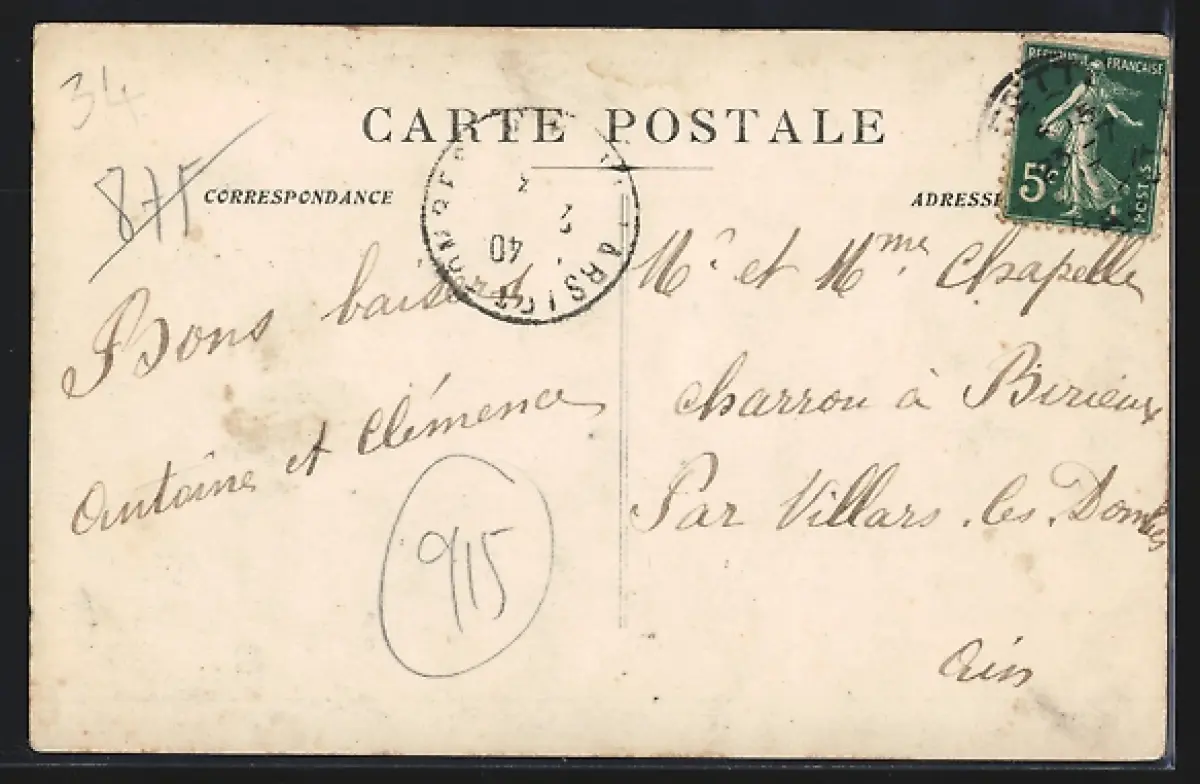 34
875
CARTE POSTALE
CORRESPONDANCE
ADRESSE
RÉPUBLIQUE FRANÇAISE
5c
POSTES
40
Bons baisers
Antoine et Clémence
915
Mr et Mme Chapelle
charron à Birieux
Par Villars.les.Dombes
Ain